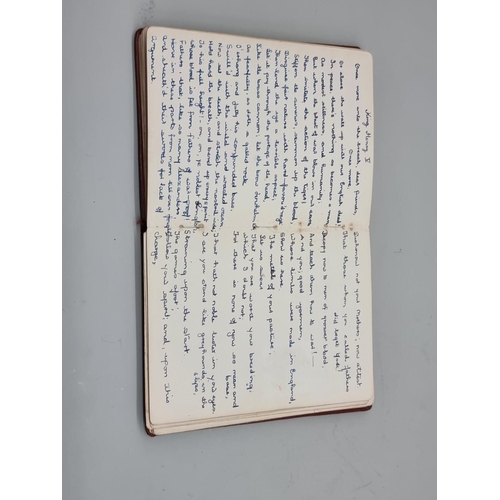 King Henry V
Once more unto the breach, dear friends,
Once more
Or close the wall up with our English dead
In peace there's nothing so becomes a man
As modest stillness and humanity:
But when the blast of war blows in our ears
Then imitate the action of the tiger;
Stiffen the sinews, summon up the blood
Disguise fair nature with hard-favour'd rage
Then lend the eye a terrible aspect;
Let it pry through the portage of the head
Like the brass cannon; let the brow
As fearfully, as doth a galled rock
O'erhang and jutty his confounded base
Swill'd with the wild and wasteful ocean.
Now set the teeth, and stretch the nostril wide,
Hold hard the breath, and bend up every spirit
To his full height! - on, on,
whose blood is fet from fathers of war-proof!
Fathers, that, like so many Alexanders,
Have in these parts from morn till even fought
And sheath'd their swords for lack of
argument
Dishonour not your mothers; now attest
That those whom you called fathers
did beget you!
copy now to men of grosser blood
And teach them how to war! —
And you, good yeomen,
Whose limbs were made in England,
Show us here
The mettle of your pasture,
let us swear
That you are worth your breeding:
which I doubt not;
For there is none of you so mean and
base,
That hath not noble lustre in your eyes
I see you stand like greyhounds in the
slips,
Straining upon the start
The game's afoot:
Follow your spirit; and, upon this
charge,